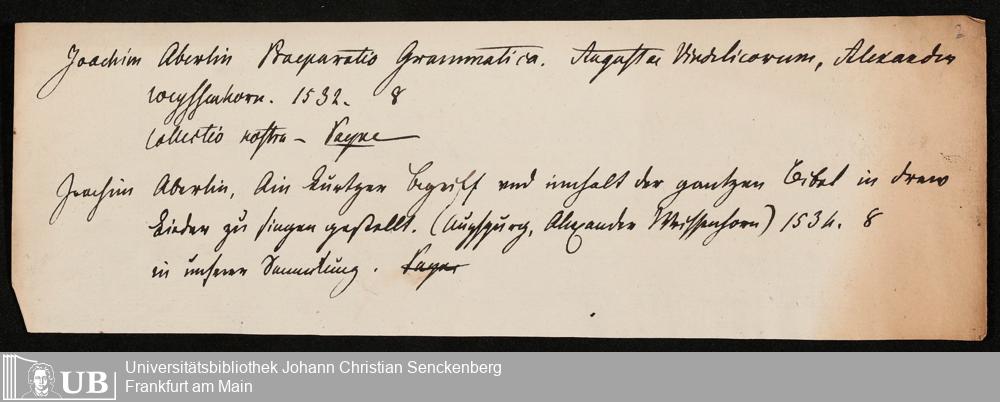 Joachim Aberlin Praeparatio Grammatica. Augustae Vindelicorum, Alexander
weyssenhorn. 1532. 8
collectio nostra –
Joachim Aberlin, Ain kurtzer begriff und innhalt der gantzen Bibel in drew
Lieder zu singen gestellt. (Augspurg, Alexander Weissenhorn) 1534. 8
in unserer Sammlung.
UB
Universitätsbibliothek Johann Christian Senckenberg
Frankfurt am Main